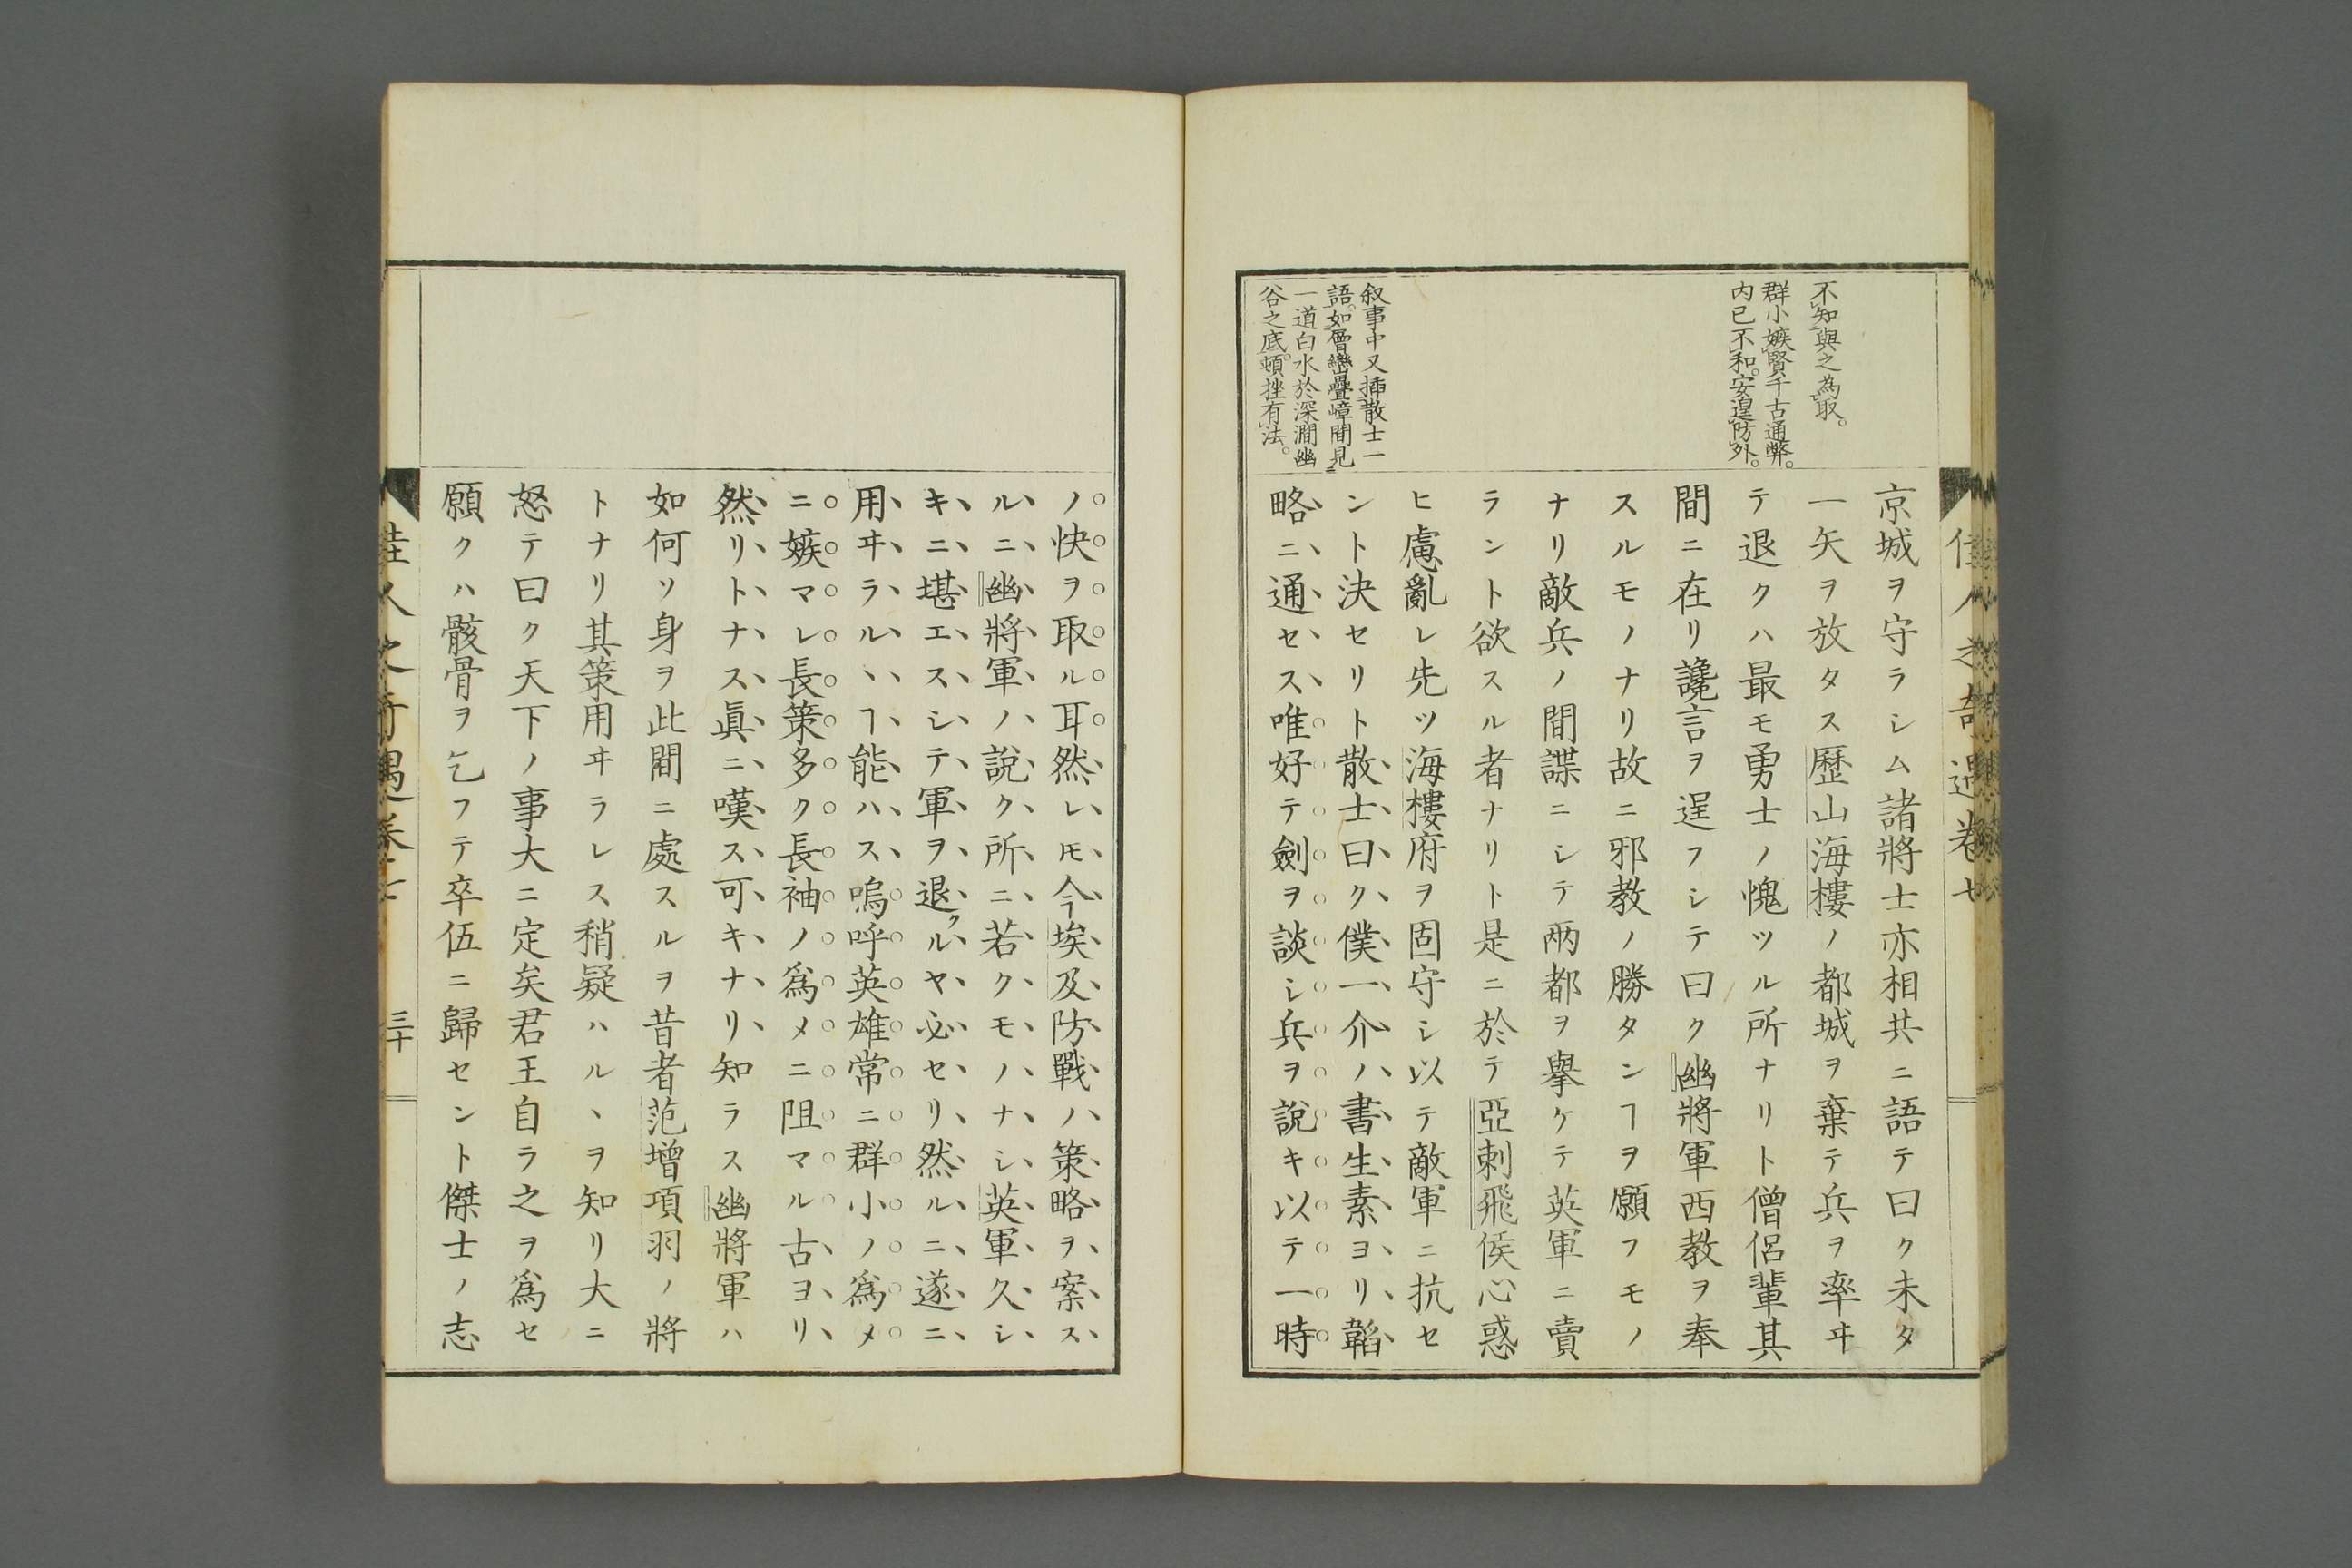 佳人之奇遇卷七
不知與之為取。
群小嫉賢千古通弊。
内已不和。安遑防外。
叙事中又挿散士一
語。如層巒疊嶂間見
一道白水於深澗幽
谷之底。頓挫有法。
京城ヲ守ラシム諸將士亦相共ニ語テ曰ク未タ
一矢ヲ放タス歷山海樓ノ都城ヲ棄テ兵ヲ率ヰ
テ退クハ最モ勇士ノ愧ツル所ナリト僧侶輩其
間ニ在リ讒言ヲ逞フシテ曰ク幽將軍西教ヲ奉
スルモノナリ故ニ邪教ノ勝タンヿヲ願フモノ
ナリ敵兵ノ間諜ニシテ兩都ヲ擧ケテ英軍ニ賣
ラント欲スル者ナリト是ニ於テ亞剌飛侯心惑
ヒ慮亂レ先ツ海樓府ヲ固守シ以テ敵軍ニ抗セ
ント決セリト散士曰ク僕一介ノ書生素ヨリ韜
略ニ通セス唯好テ劍ヲ談シ兵ヲ說キ以テ一時
ノ快ヲ取ル耳然レ𪜈今埃及防戰ノ策略ヲ案ス
ルニ幽將軍ノ說ク所ニ若クモノナシ英軍久シ
キニ堪エスシテ軍ヲ退クルヤ必セリ然ルニ遂ニ
用ヰラルヽヿ能ハス嗚呼英雄常ニ群小ノ爲メ
ニ嫉マレ長策多ク長袖ノ爲メニ阻マル古ヨリ
然リトナス眞ニ嘆ス可キナリ知ラス幽將軍ハ
如何ソ身ヲ此間ニ處スルヲ昔者范增項羽ノ將
トナリ其策用ヰラレス稍疑ハルヽヲ知リ大ニ
怒テ曰ク天下ノ事大ニ定矣君王自ラ之ヲ爲セ
願クハ骸骨ヲ乞フテ卒伍ニ歸セント傑士ノ志
佳人之奇遇卷七
三十